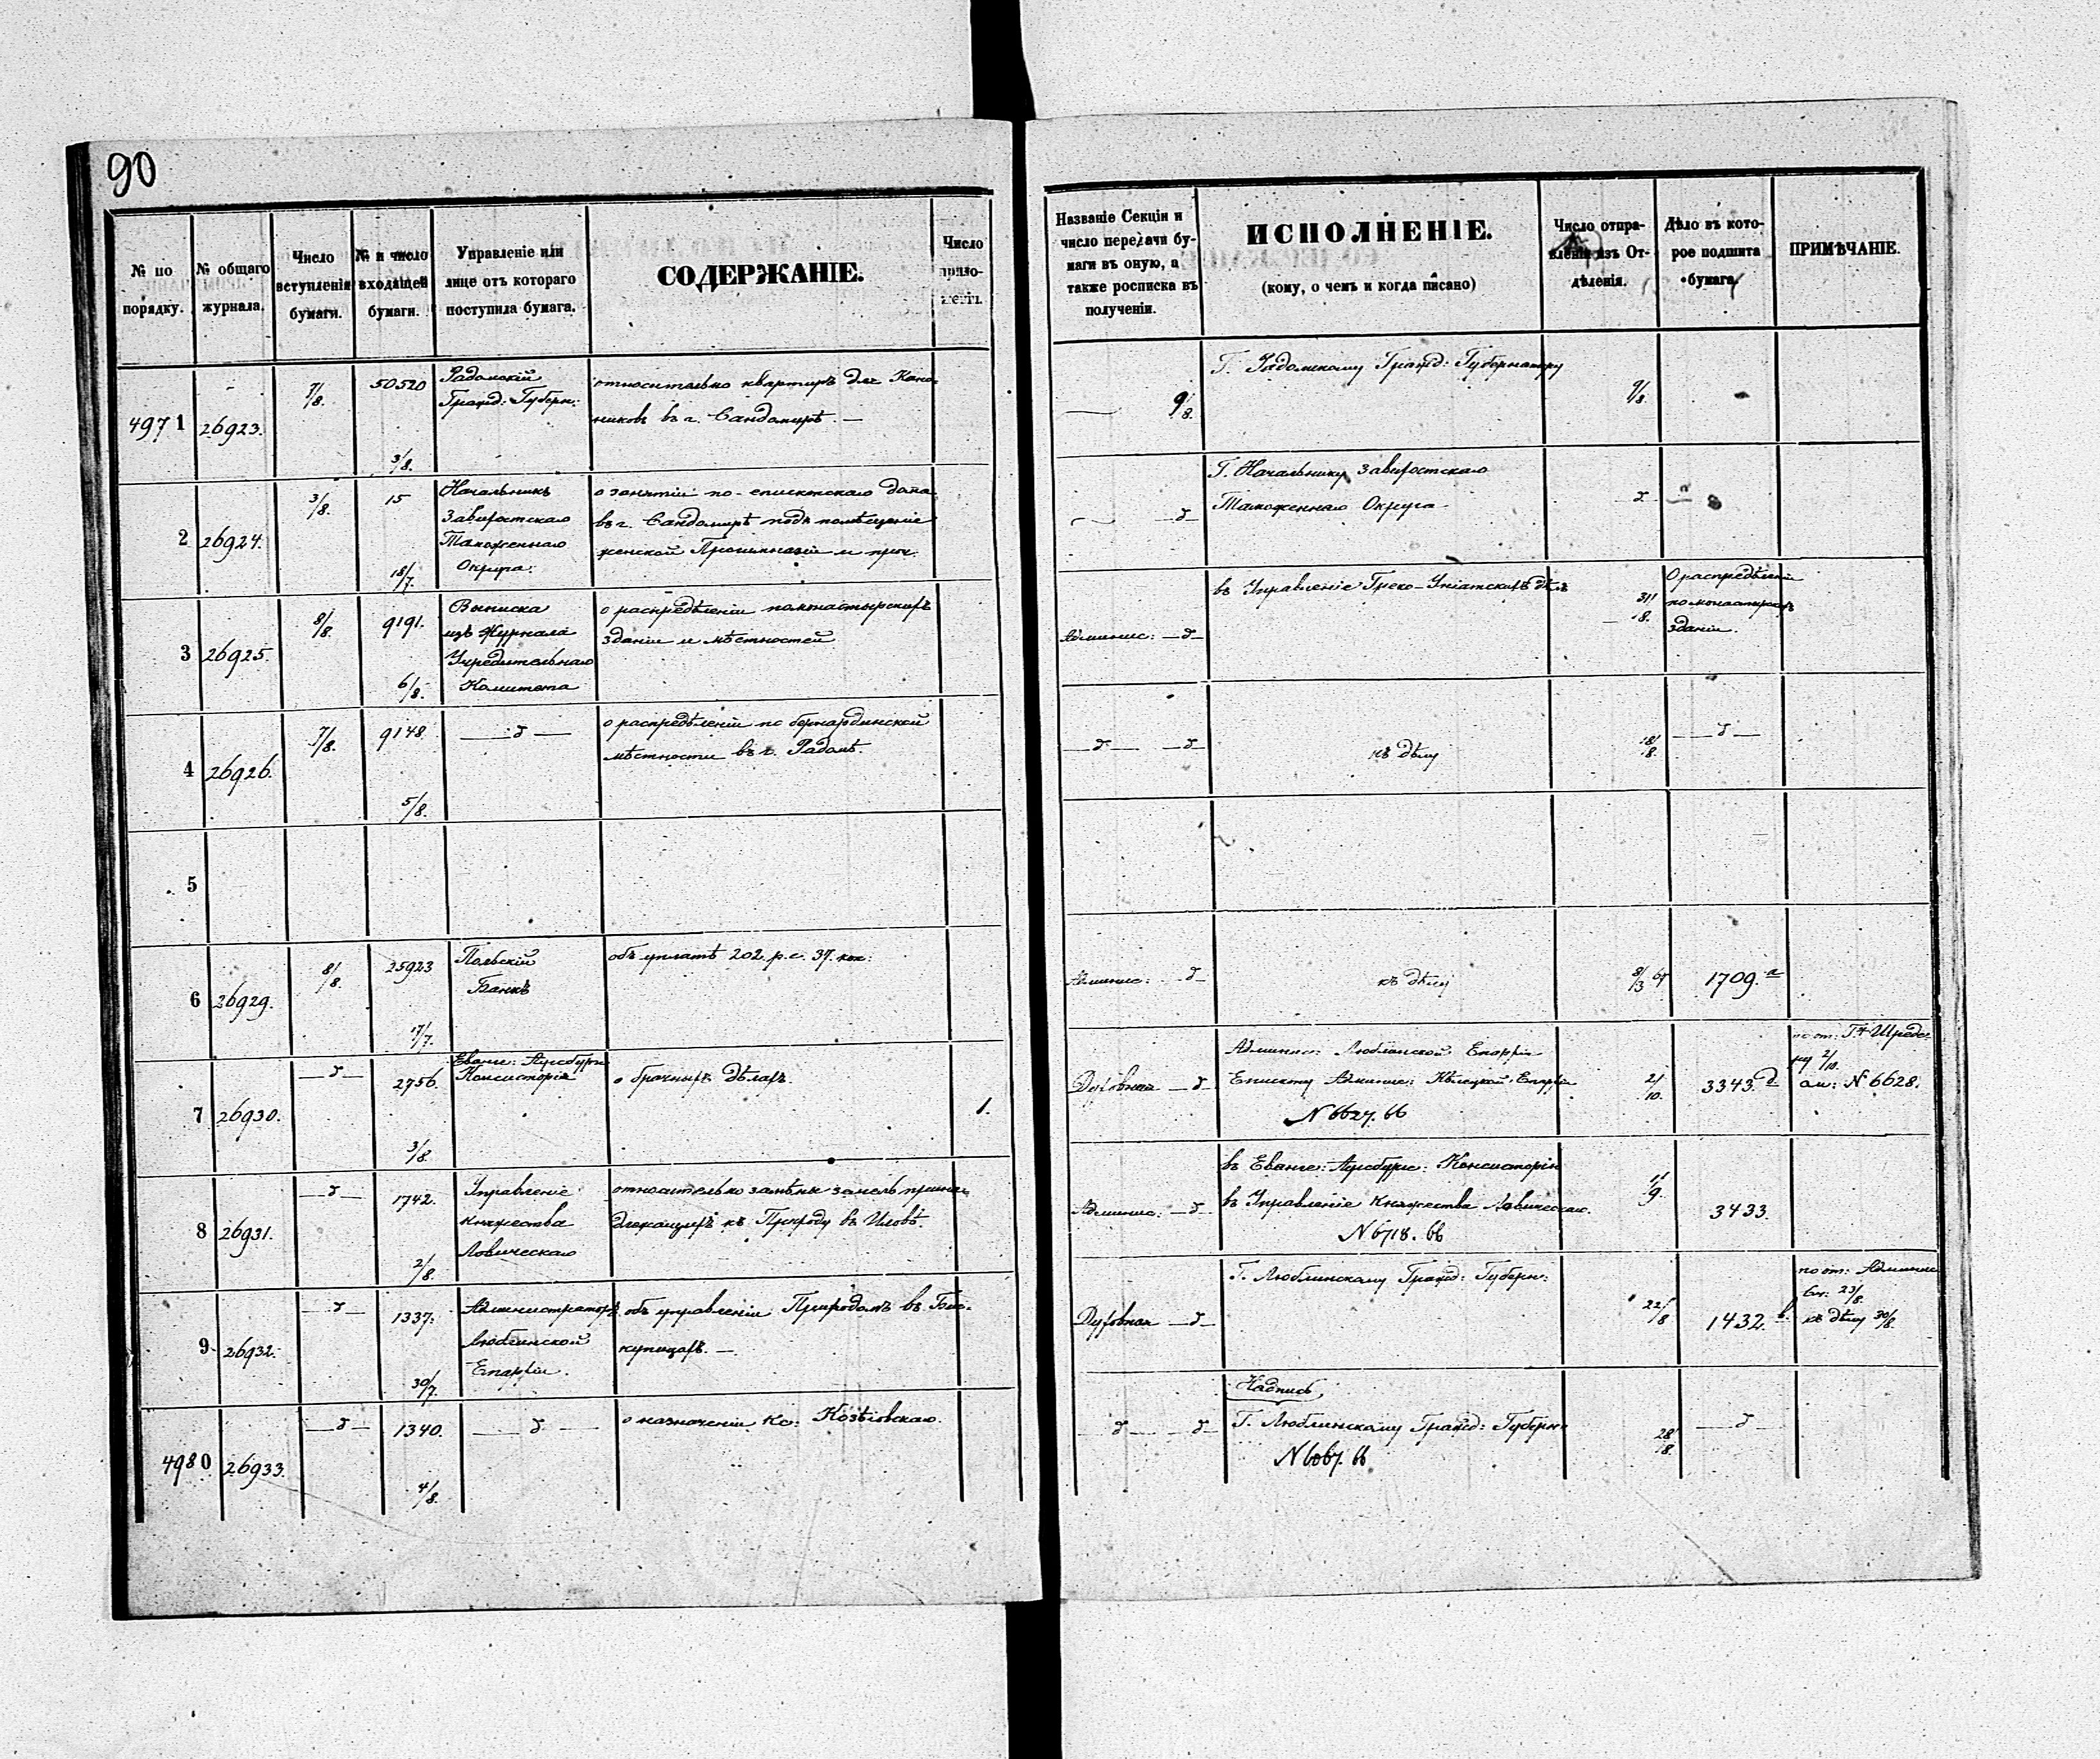 90
№ по порядку.
№ общаго журнала.
Число вступленія бумаги.
№ и число входящей бумаги.
Управленіе или лице отъ котораго поступила бумага.
СОДЕРЖАНІЕ.
Число прило-
Названіе Секціи и число передачи бумаги въ оную, а также росписка въ полученіи.
ИСПОЛНЕНІЕ.
(кому, о чемъ и когда писано)
Число отправленія изъ Отдѣленія.
Дѣло въ которое подшита бумага.
ПРИМѢЧАНІЕ.
4971 26923. 7/8. 50520 3/8.
Радомскій
Гражд: Губерн:
относительно квартиръ для Кано-
никовъ въ г. Сандомирѣ. —
9/8.
Г. Радомскому Гражд: Губернатору
9/8.
2 26924. 3/8. 15 18/7.
Начальникъ
Завихостскаго
Таможеннаго
Округа.
о занятіи по-епископскаго дома
въ г. Сандомирѣ подъ помѣщеніе
женской Прогимназіи и проч.
— д —
Г. Начальнику Завихостскаго
Таможеннаго Округа
— д —
3 26925. 8/8. 9191. 6/8.
Выписка
изъ Журнала
Учредительнаго
Комитета
о распредѣленіи помонастырскихъ
зданій и мѣстностей
Админис: — д —
въ Управленіе Греко-Уніатскихъ дѣлъ
31/8.
О распредѣленіи
помонастырскихъ
зданій.
4 26926. 7/8. 9148. 5/8.
— д —
о распредѣленіи по бернардинской
мѣстности въ г. Радомѣ.
— д — — д —
къ дѣлу
18/8.
— д —
5
6 26929. 8/8. 25923 17/7.
Польскій
Банкъ
объ уплатѣ 202 р. с. 37. коп:
Админис: — д —
къ дѣлу
8/3 67
1709. а
7 26930. — д — 2756. 3/8
Еванг: Аугсбург:
Консисторія
о брачныхъ дѣлахъ.
1.
Духовная — д —
Админис: Люблинской Епархіи
Епископу Админис: Кѣлецкой Епархіи
N 6627. 66
2/10.
3343. д
2/10.
N 6628.
8 26931. — д — 1742. 2/8.
Управленіе
Княжества
Ловическаго
относительно замѣны земель прина-
длежащихъ къ Приходу въ Иловѣ.
Админис. — д —
въ Еванг: Аугсбург: Консисторію
въ Управленіе Княжества Ловическаго.
N 6718. 66
9.
3433.
9 26932. — д — 1337. 30/7.
Администраторъ
Люблинской
Епархіи.
объ управленіи Приходомъ въ Бис-
купицахъ. —
Духовная — д —
Г. Люблинскому Гражд: Губерн:
22/8
1432. в.
по от: Админис
23/8.
къ дѣлу 30/8.
4980 26933. — д — 1340. 4/8.
— д —
о назначеніи Кс:
— д — — д —
Надпись
Г. Люблинскому Гражд: Губерн:
N 6067. 66
28/8.
— д —